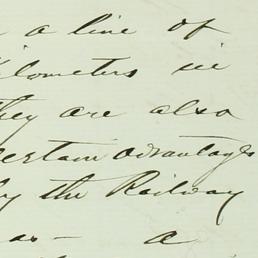 a line of
ilometers in
they are also
certain advantages
by the Railway
as - a